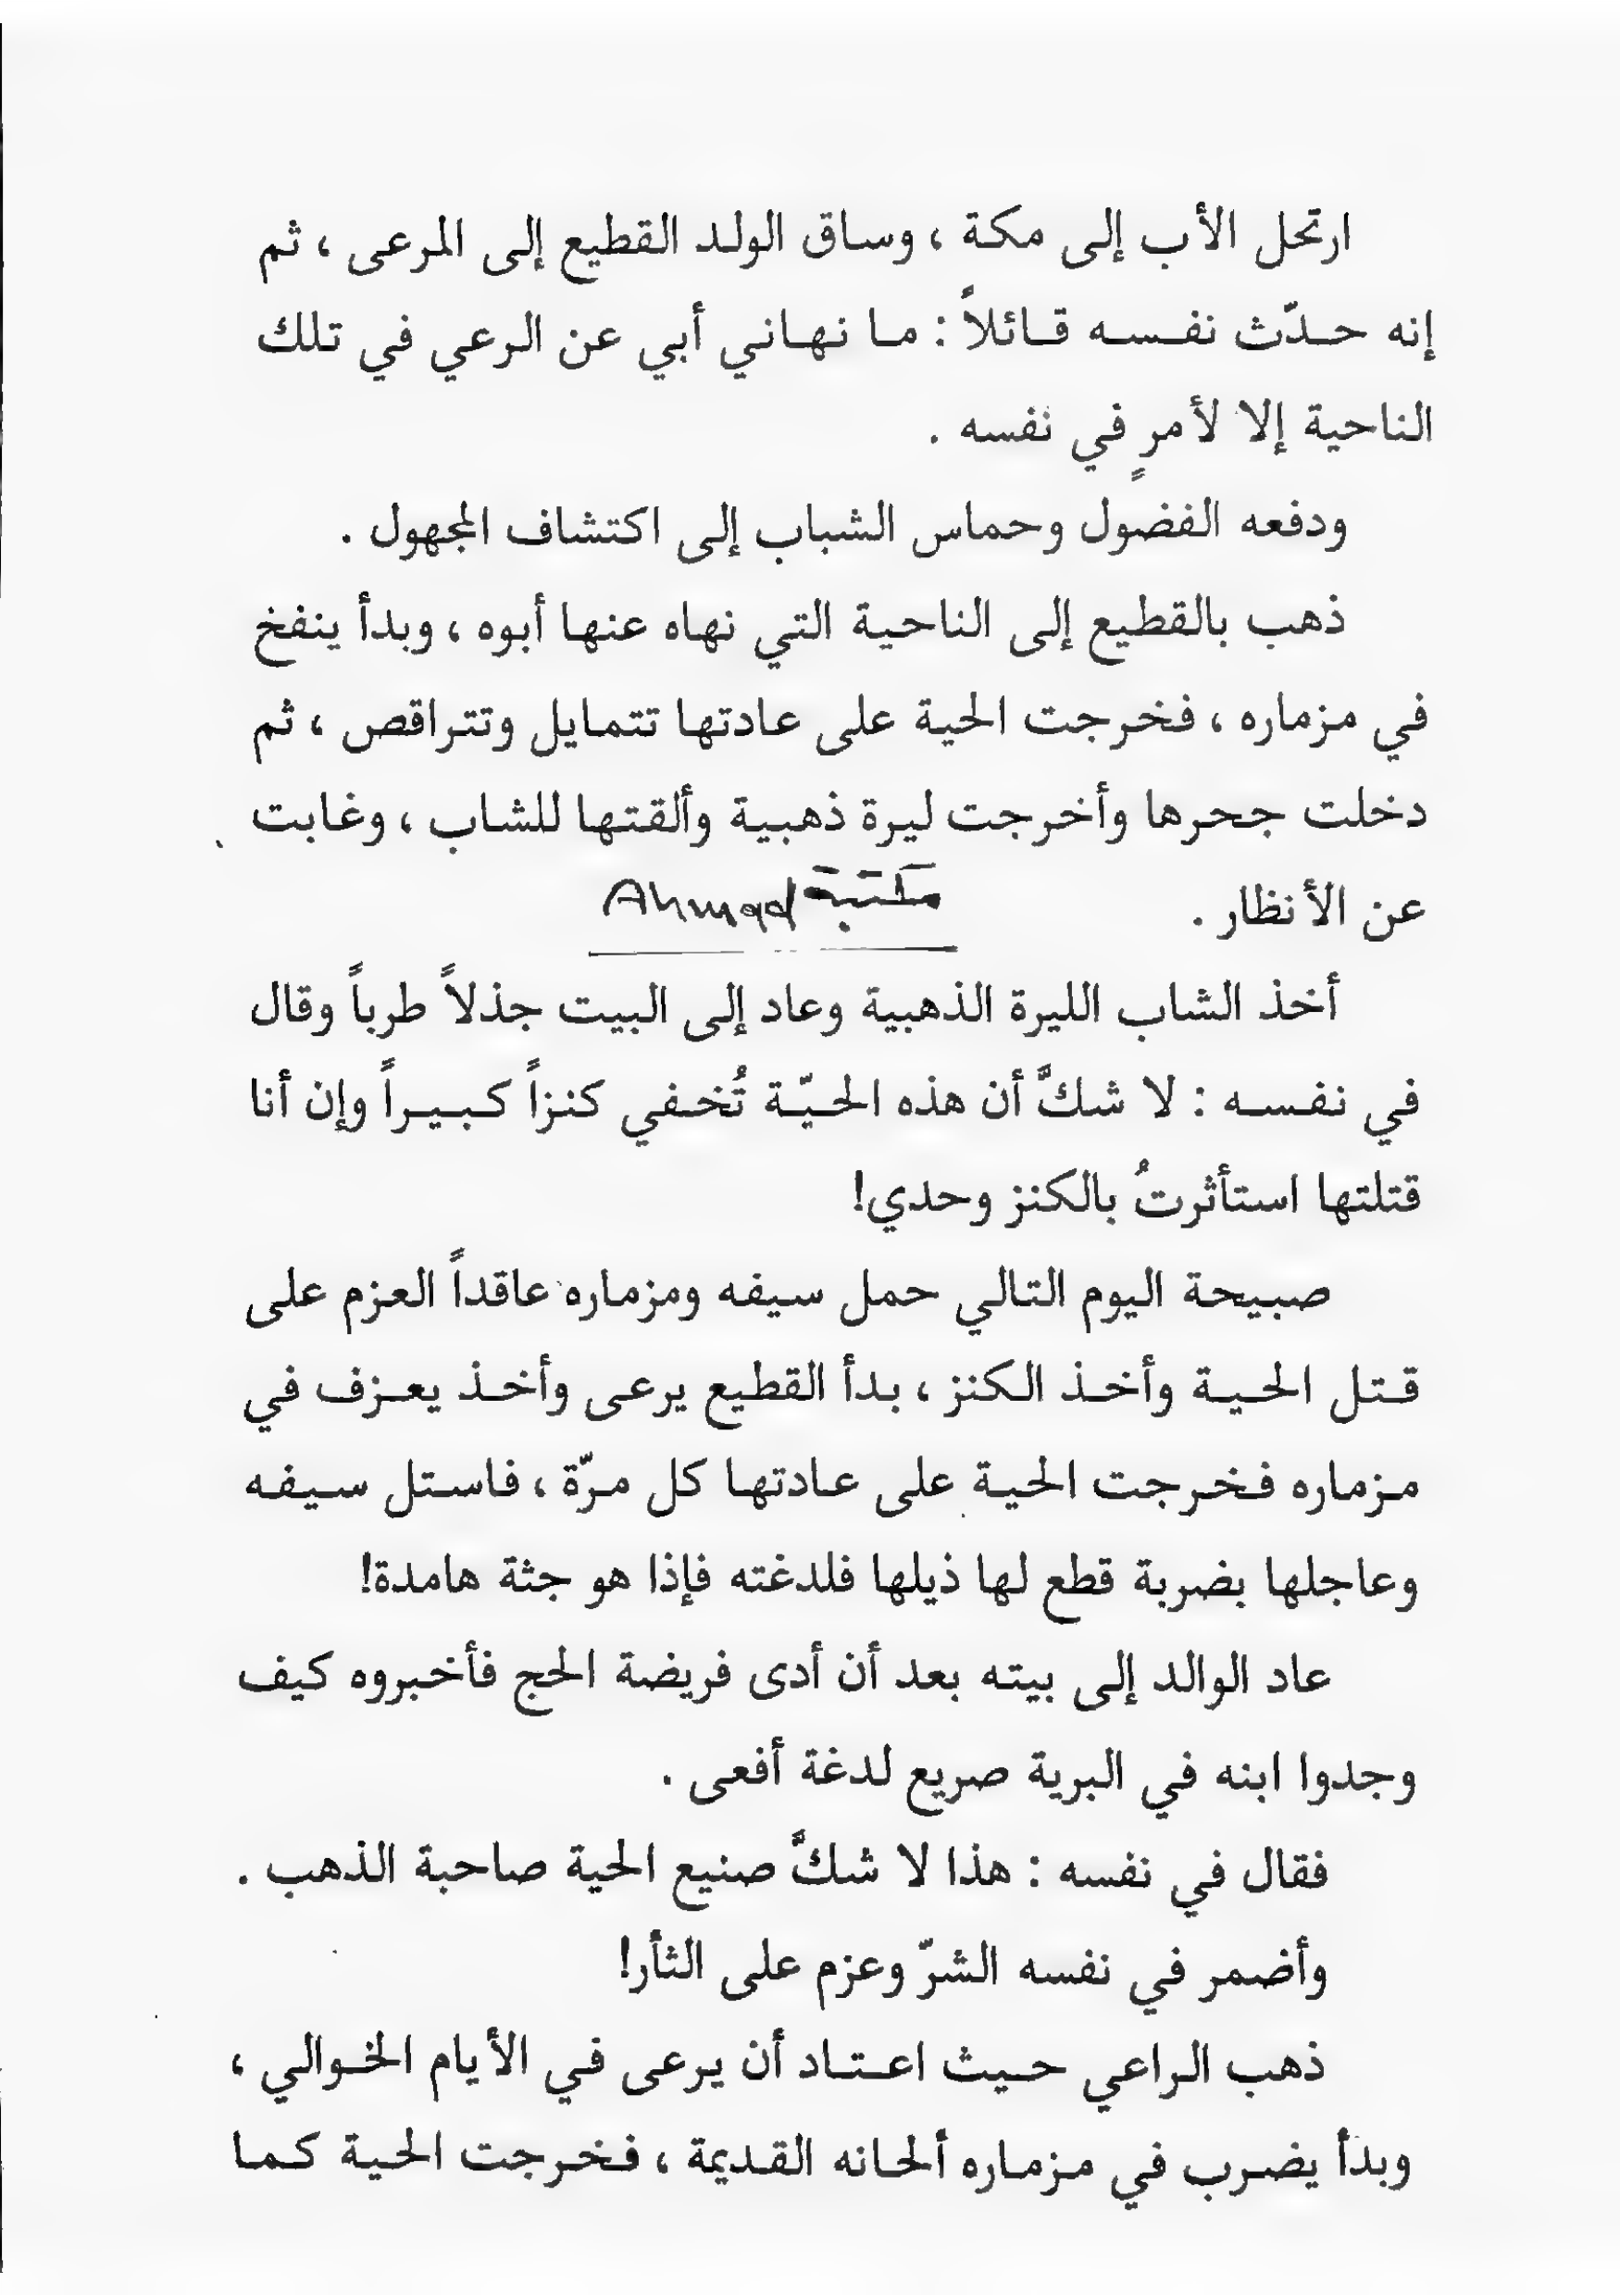 ارتحل الأب إلى مكة ، وساق الولد القطيع إلى المرعى ، ثم
إنه حدّث نفسه قائلاً : ما نهاني أبي عن الرعي في تلك
الناحية إلا لأمرٍ في نفسه .
ودفعه الفضول وحماس الشباب إلى اكتشاف المجهول .
ذهب بالقطيع إلى الناحية التي نهاه عنها أبوه ، وبدأ ينفخ
في مزماره ، فخرجت الحية على عادتها تتمايل وتتراقص ، ثم
دخلت جحرها وأخرجت ليرة ذهبية وألقتها للشاب ، وغابت
عن الأنظار .
مكتبة Ahmad
أخذ الشاب الليرة الذهبية وعاد إلى البيت جذلاً طرباً وقال
في نفسه : لا شكَّ أن هذه الحيّة تُخفي كنزاً كبيراً وإن أنا
قتلتها استأثرتُ بالكنز وحدي!
صبيحة اليوم التالي حمل سيفه ومزماره عاقداً العزم على
قتل الحية وأخذ الكنز ، بدأ القطيع يرعى وأخذ يعزف في
مزماره فخرجت الحية على عادتها كل مرّة ، فاستل سيفه
وعاجلها بضربة قطع لها ذيلها فلدغته فإذا هو جثة هامدة!
عاد الوالد إلى بيته بعد أن أدى فريضة الحج فأخبروه كيف
وجدوا ابنه في البرية صريع لدغة أفعى .
فقال في نفسه : هذا لا شكَّ صنيع الحية صاحبة الذهب .
وأضمر في نفسه الشرّ وعزم على الثأر!
ذهب الراعي حيث اعتاد أن يرعى في الأيام الخوالي ،
وبدأ يضرب في مزماره ألحانه القديمة ، فخرجت الحية كما